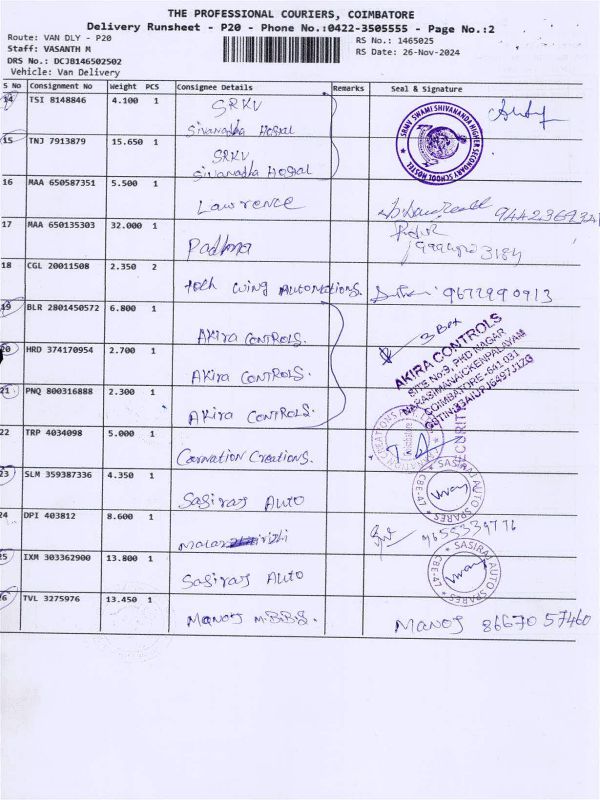 THE PROFESSIONAL COURIERS, COIMBATORE
Delivery Runsheet - P20 - Phone No.:0422-3505555 - Page No.:2
Route: VAN DLY - P20
RS No.: 1465025
Staff: VASANTH M
RS Date: 26-Nov-2024
DRS No.: DCJB146502502
Vehicle: Van Delivery
S No Consignment No Weight PCS Consignee Details Remarks Seal & Signature
14 TSI 8148846 4.100 1 SRKV
Sivanandha Hostal
SRMV SWAMI SHIVANANDA HIGHER SECONDARY SCHOOL HOSTEL
15 TNJ 7913879 15.650 1 SRKV
Sivanandha Hostal
16 MAA 650587351 5.500 1 Lawrence
17 MAA 650135303 32.000 1 Padma
18 CGL 20011508 2.350 2 Wing Automations. 9672990913
19 BLR 2801450572 6.800 1 Akira CONTROLS.
3 Box
20 HRD 374170954 2.700 1 Akira CONTROLS.
AKIRA CONTROLS
SITE No:9, PKD NAGAR
NARASIMANAICKENPALAYAM
COIMBATORE-641 031
21 PNQ 800316888 2.300 1 Akira CONTROLS.
22 TRP 4034098 5.000 1 Carnation Creations.
23 SLM 359387336 4.350 1 Sasiraj Auto
SASIRAJ AUTO SPARES
CBE-47
24 DPI 403812 8.600 1
9655339776
25 IXM 303362900 13.800 1 Sasiraj Auto
SASIRAJ AUTO SPARES
CBE-47
26 TVL 3275976 13.450 1 Manoj M.B.B.S. MANOJ 86670 57460